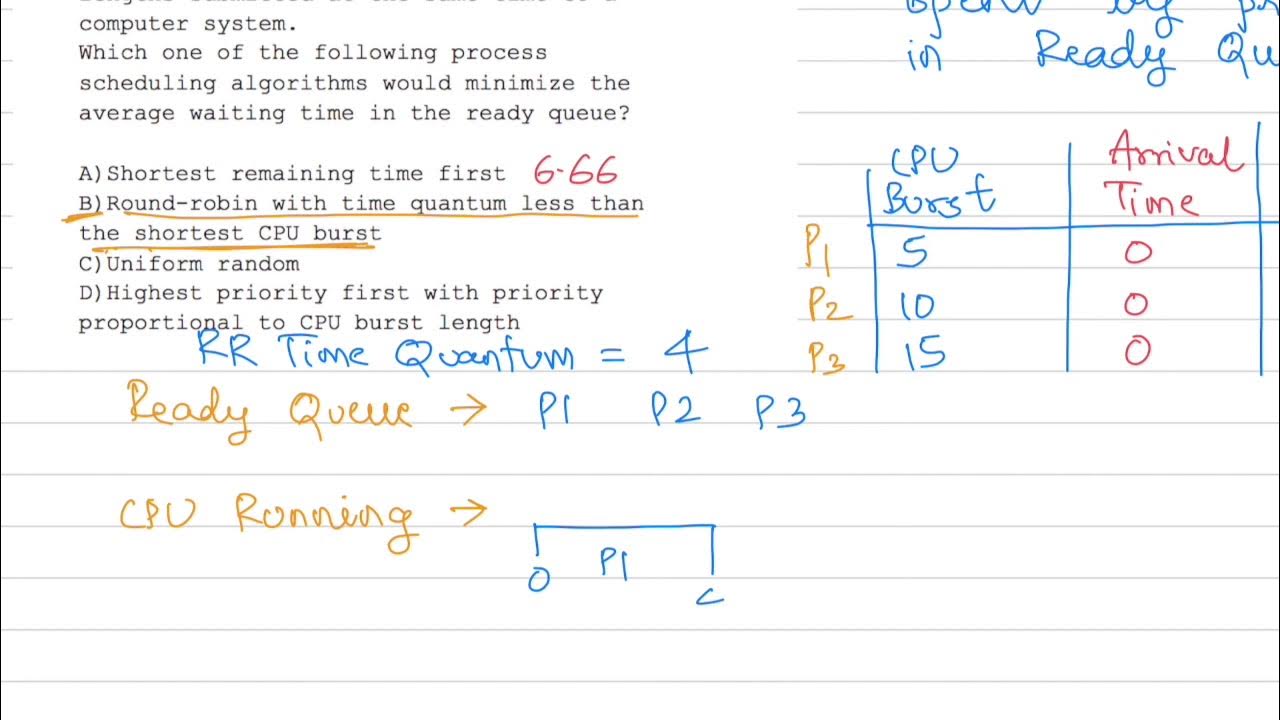 computer system.
Which one of the following process
scheduling algorithms would minimize the
average waiting time in the ready queue?
A) Shortest remaining time first 6.66
B) Round-robin with time quantum less than
the shortest CPU burst
C) Uniform random
D) Highest priority first with priority
proportional to CPU burst length
RR Time Quantum = 4
Ready Queue → P1 P2 P3
CPU Running →
P1
0
by
in Ready Qu
CPU Burst Arrival Time
P1 5 0
P2 10 0
P3 15 0